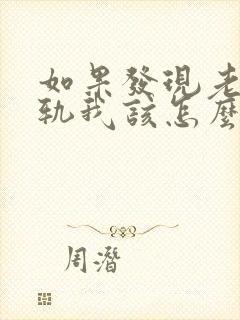 如果發現老
軌我該怎麼
周潛